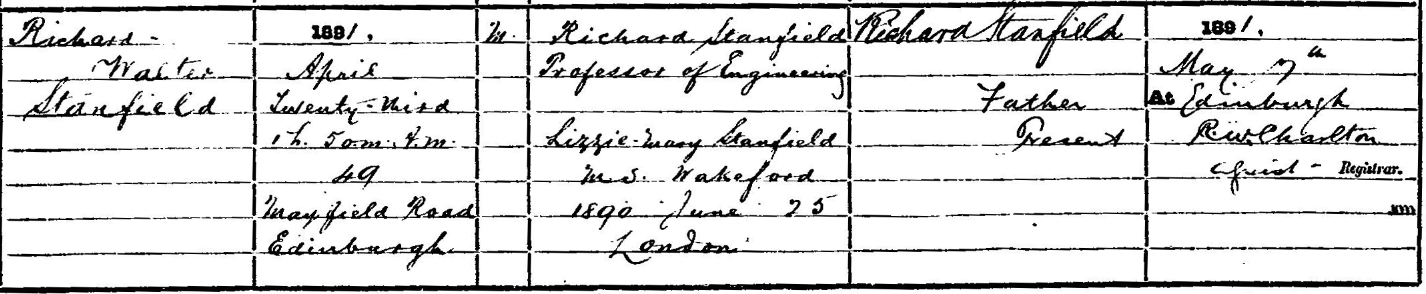 Richard
Walter
Stanfield
1891.
April
Twenty-third
1h. 50m. A.m.
49
Mayfield Road
Edinburgh.
M.
Richard Stanfield
Professor of Engineering
Lizzie-Mary Stanfield
M.S. Wakeford
1890 June 25
London
Richard Stanfield
Father
Present
1891.
May 7th
At Edinburgh
R.W. Charlton
Registrar.